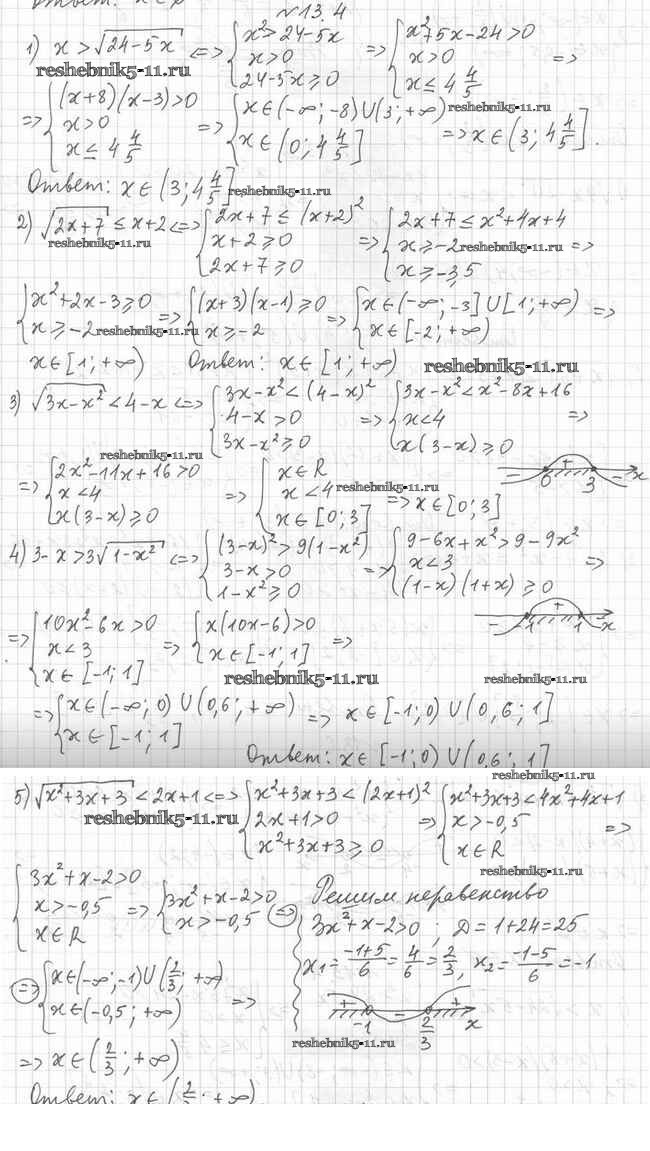 Ответ:
№13.4
1) x > √(24-5x) <=> { x² > 24-5x; x > 0; 24-5x ≥ 0 => { x²+5x-24 > 0; x > 0; x ≤ 4 4/5 =>
reshebnik5-11.ru
=> { (x+8)(x-3) > 0; x > 0; x ≤ 4 4/5 => { x ∈ (-∞; -8) ∪ (3; +∞); x ∈ (0; 4 4/5] => x ∈ (3; 4 4/5].
reshebnik5-11.ru
Ответ: x ∈ (3; 4 4/5]
reshebnik5-11.ru
2) √(2x+7) ≤ x+2 <=> { 2x+7 ≤ (x+2)²; x+2 ≥ 0; 2x+7 ≥ 0 => { 2x+7 ≤ x²+4x+4; x ≥ -2; x ≥ -3,5 =>
reshebnik5-11.ru reshebnik5-11.ru
{ x²+2x-3 ≥ 0; x ≥ -2 => { (x+3)(x-1) ≥ 0; x ≥ -2 => { x ∈ (-∞; -3] ∪ [1; +∞); x ∈ [-2; +∞) =>
reshebnik5-11.ru
x ∈ [1; +∞) Ответ: x ∈ [1; +∞)
reshebnik5-11.ru
3) √(3x-x²) < 4-x <=> { 3x-x² < (4-x)²; 4-x > 0; 3x-x² ≥ 0 => { 3x-x² < x²-8x+16; x < 4; x(3-x) ≥ 0 =>
reshebnik5-11.ru
=> { 2x²-11x+16 > 0; x < 4; x(3-x) ≥ 0 => { x ∈ R; x < 4; x ∈ [0; 3] => x ∈ [0; 3]
reshebnik5-11.ru
- 0 + 3 - x
4) 3-x > 3√(1-x²) <=> { (3-x)² > 9(1-x²); 3-x > 0; 1-x² ≥ 0 => { 9-6x+x² > 9-9x²; x < 3; (1-x)(1+x) ≥ 0 =>
=> { 10x²-6x > 0; x < 3; x ∈ [-1; 1] => { x(10x-6) > 0; x ∈ [-1; 1] =>
- -1 + 1 - x
reshebnik5-11.ru reshebnik5-11.ru
=> { x ∈ (-∞; 0) ∪ (0,6; +∞); x ∈ [-1; 1] => x ∈ [-1; 0) ∪ (0,6; 1]
Ответ: x ∈ [-1; 0) ∪ (0,6; 1]
reshebnik5-11.ru
5) √(x²+3x+3) < 2x+1 <=> { x²+3x+3 < (2x+1)²; 2x+1 > 0; x²+3x+3 ≥ 0 => { x²+3x+3 < 4x²+4x+1; x > -0,5; x ∈ R =>
reshebnik5-11.ru
reshebnik5-11.ru
{ 3x²+x-2 > 0; x > -0,5; x ∈ R => { 3x²+x-2 > 0; x > -0,5 =>
Решим неравенство
3x²+x-2 > 0; D = 1+24 = 25
x₁ = (-1+5)/6 = 4/6 = 2/3, x₂ = (-1-5)/6 = -1
+ -1 - 2/3 + x
reshebnik5-11.ru
=> { x ∈ (-∞; -1) ∪ (2/3; +∞); x ∈ (-0,5; +∞) =>
=> x ∈ (2/3; +∞)
Ответ: x ∈ (2/3; +∞)